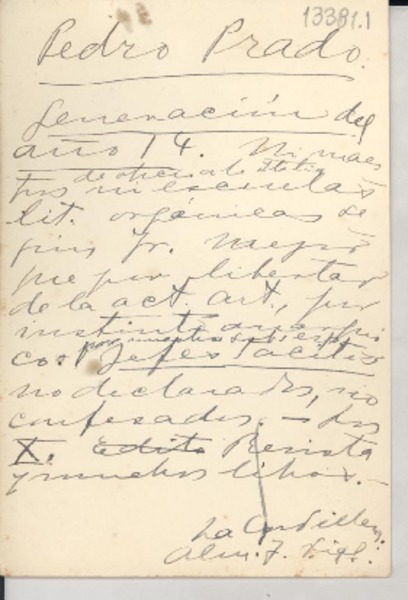 13381.1
Pedro Prado.
Generación del
año 14. Ni maes
tros ni escuelas
lit. orgánicas se
gún fr. mejor
que por libertad
de la act. art., por
instinto anarqui
co. Jefes tácitos
no declarados, no
confesados. — Los
X. Editó Revista
y muchos libros. —
La Cordillera.